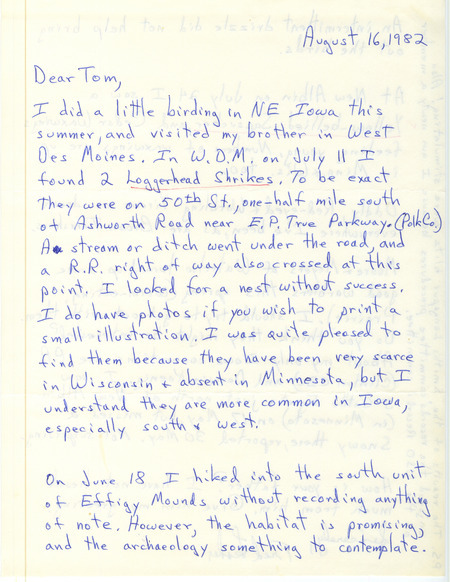 August 16, 1982
Dear Tom,
I did a little birding in NE Iowa this
summer, and visited my brother in West
Des Moines. In W.D.M. on July 11 I
found 2 Loggerhead Shrikes. To be exact
they were on 50th St., one-half mile south
of Ashworth Road near E.P. True Parkway. (Polk Co.)
A stream or ditch went under the road, and
a R.R. right of way also crossed at this
point. I looked for a nest without success.
I do have photos if you wish to print a
small illustration. I was quite pleased to
find them because they have been very scarce
in Wisconsin & absent in Minnesota, but I
understand they are more common in Iowa,
especially south & west.
On June 18 I hiked into the south unit
of Effigy Mounds without recording anything
of note. However, the habitat is promising,
and the archaeology something to contemplate.